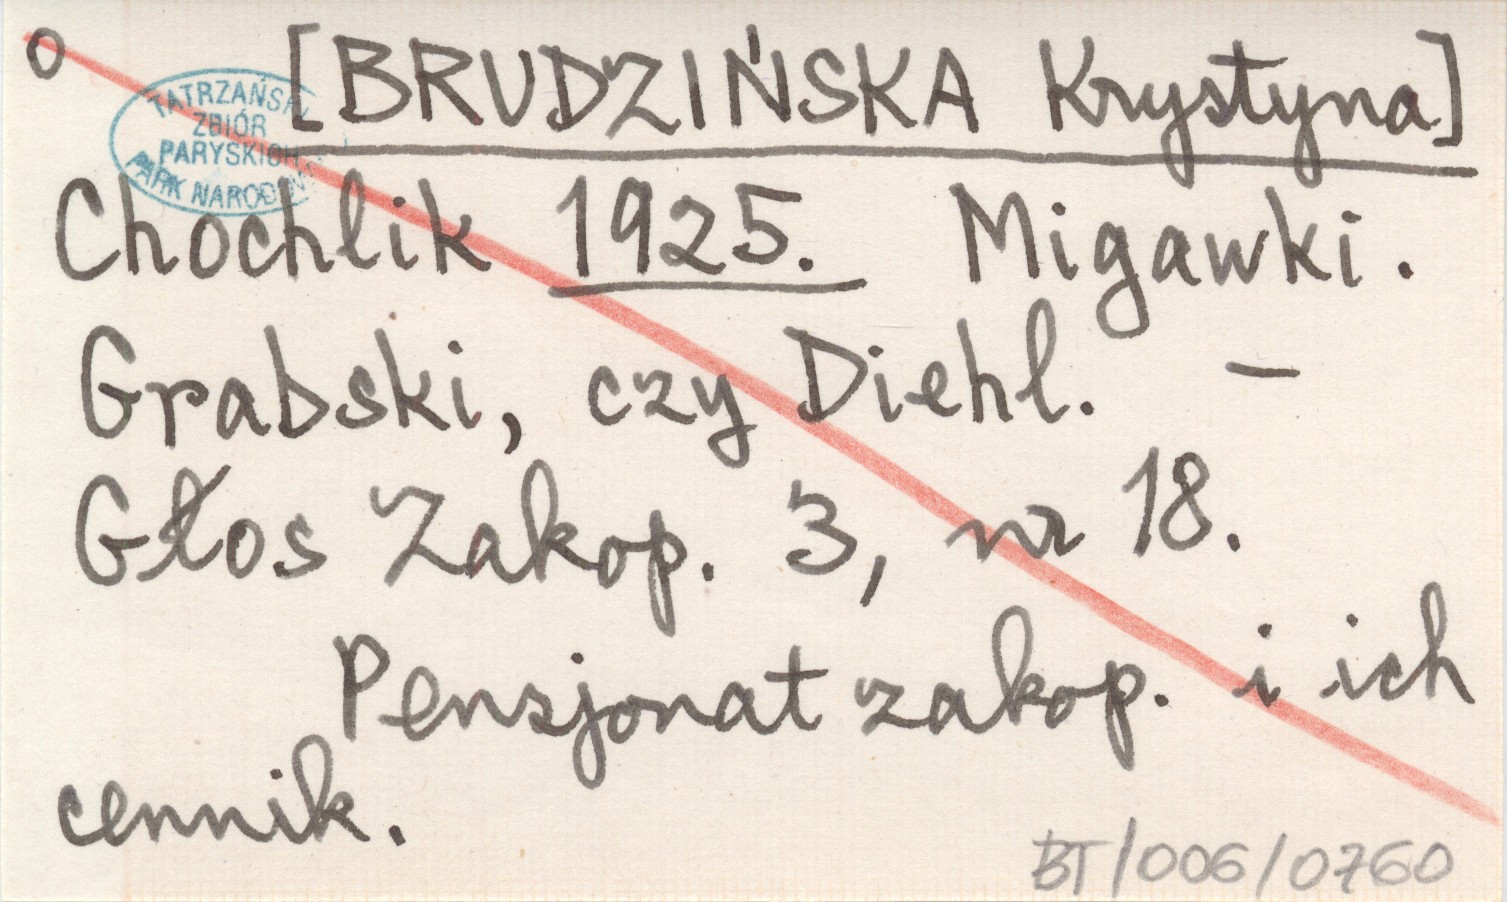 o [BRUDZIŃSKA Krystyna]
TATRZAŃSKI
ZBIÓR
PARYSKICH
PARK NARODOWY
Chochlik 1925. Migawki.
Grabski, czy Diehl. –
Głos Zakop. 3, nr 18.
Pensjonat zakop. i ich
cennik.
BT/006/0760